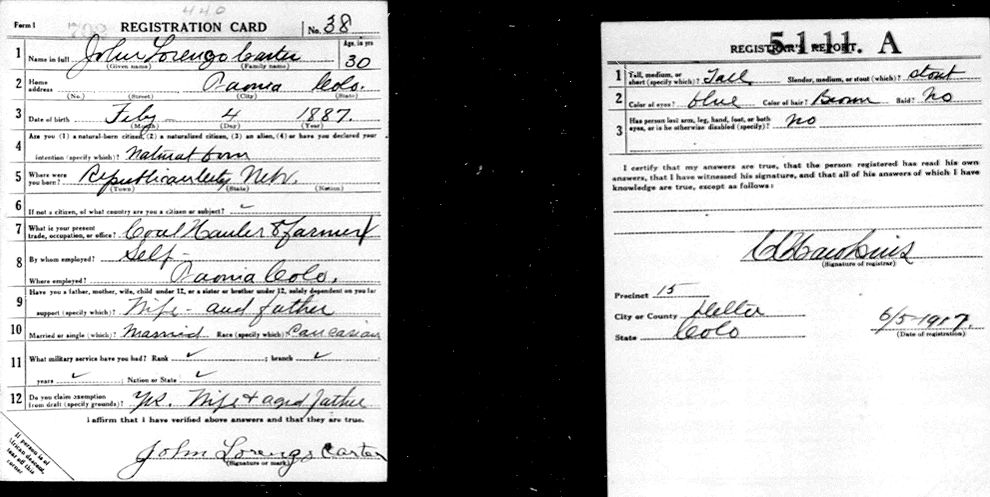 440
Form 1 792 REGISTRATION CARD No. 38
1 Name in full John Lorenzo Carter Age, in yrs 30
(Given name) (Family name)
2 Home address Paonia Colo.
(No.) (Street) (City) (State)
3 Date of birth Feby 4 1887.
(Month) (Day) (Year)
4 Are you (1) a natural-born citizen, (2) a naturalized citizen, (3) an alien, (4) or have you declared your
intention (specify which)? Natural born
5 Where were you born? Republican City Neb.
(Town) (State) (Nation)
6 If not a citizen, of what country are you a citizen or subject? ✓
7 What is your present trade, occupation, or office? Coal Hauler & farmer
8 By whom employed? Self -
Where employed? Paonia Colo.
9 Have you a father, mother, wife, child under 12, or a sister or brother under 12, solely dependent on you for
support (specify which)? Wife - and father
10 Married or single (which)? Married Race (specify which)? Caucasian
11 What military service have you had? Rank ✓ ; branch ✓
years ✓ ; Nation or State ✓
12 Do you claim exemption from draft (specify grounds)? Yes. Wife & aged father
I affirm that I have verified above answers and that they are true.
John Lorenzo Carter
(Signature or mark)
If person is of
African descent,
tear off this
corner
51 11. A
REGISTRAR'S REPORT.
1 Tall, medium, or short (specify which)? Tall Slender, medium, or stout (which)? stout
2 Color of eyes? blue Color of hair? Brown Bald? No
3 Has person lost arm, leg, hand, foot, or both eyes, or is he otherwise disabled (specify)? No
I certify that my answers are true, that the person registered has read his own
answers, that I have witnessed his signature, and that all of his answers of which I have
knowledge are true, except as follows:
Hawkins
(Signature of registrar)
Precinct 15
City or County Delta
State Colo 6/5-1917.
(Date of registration)